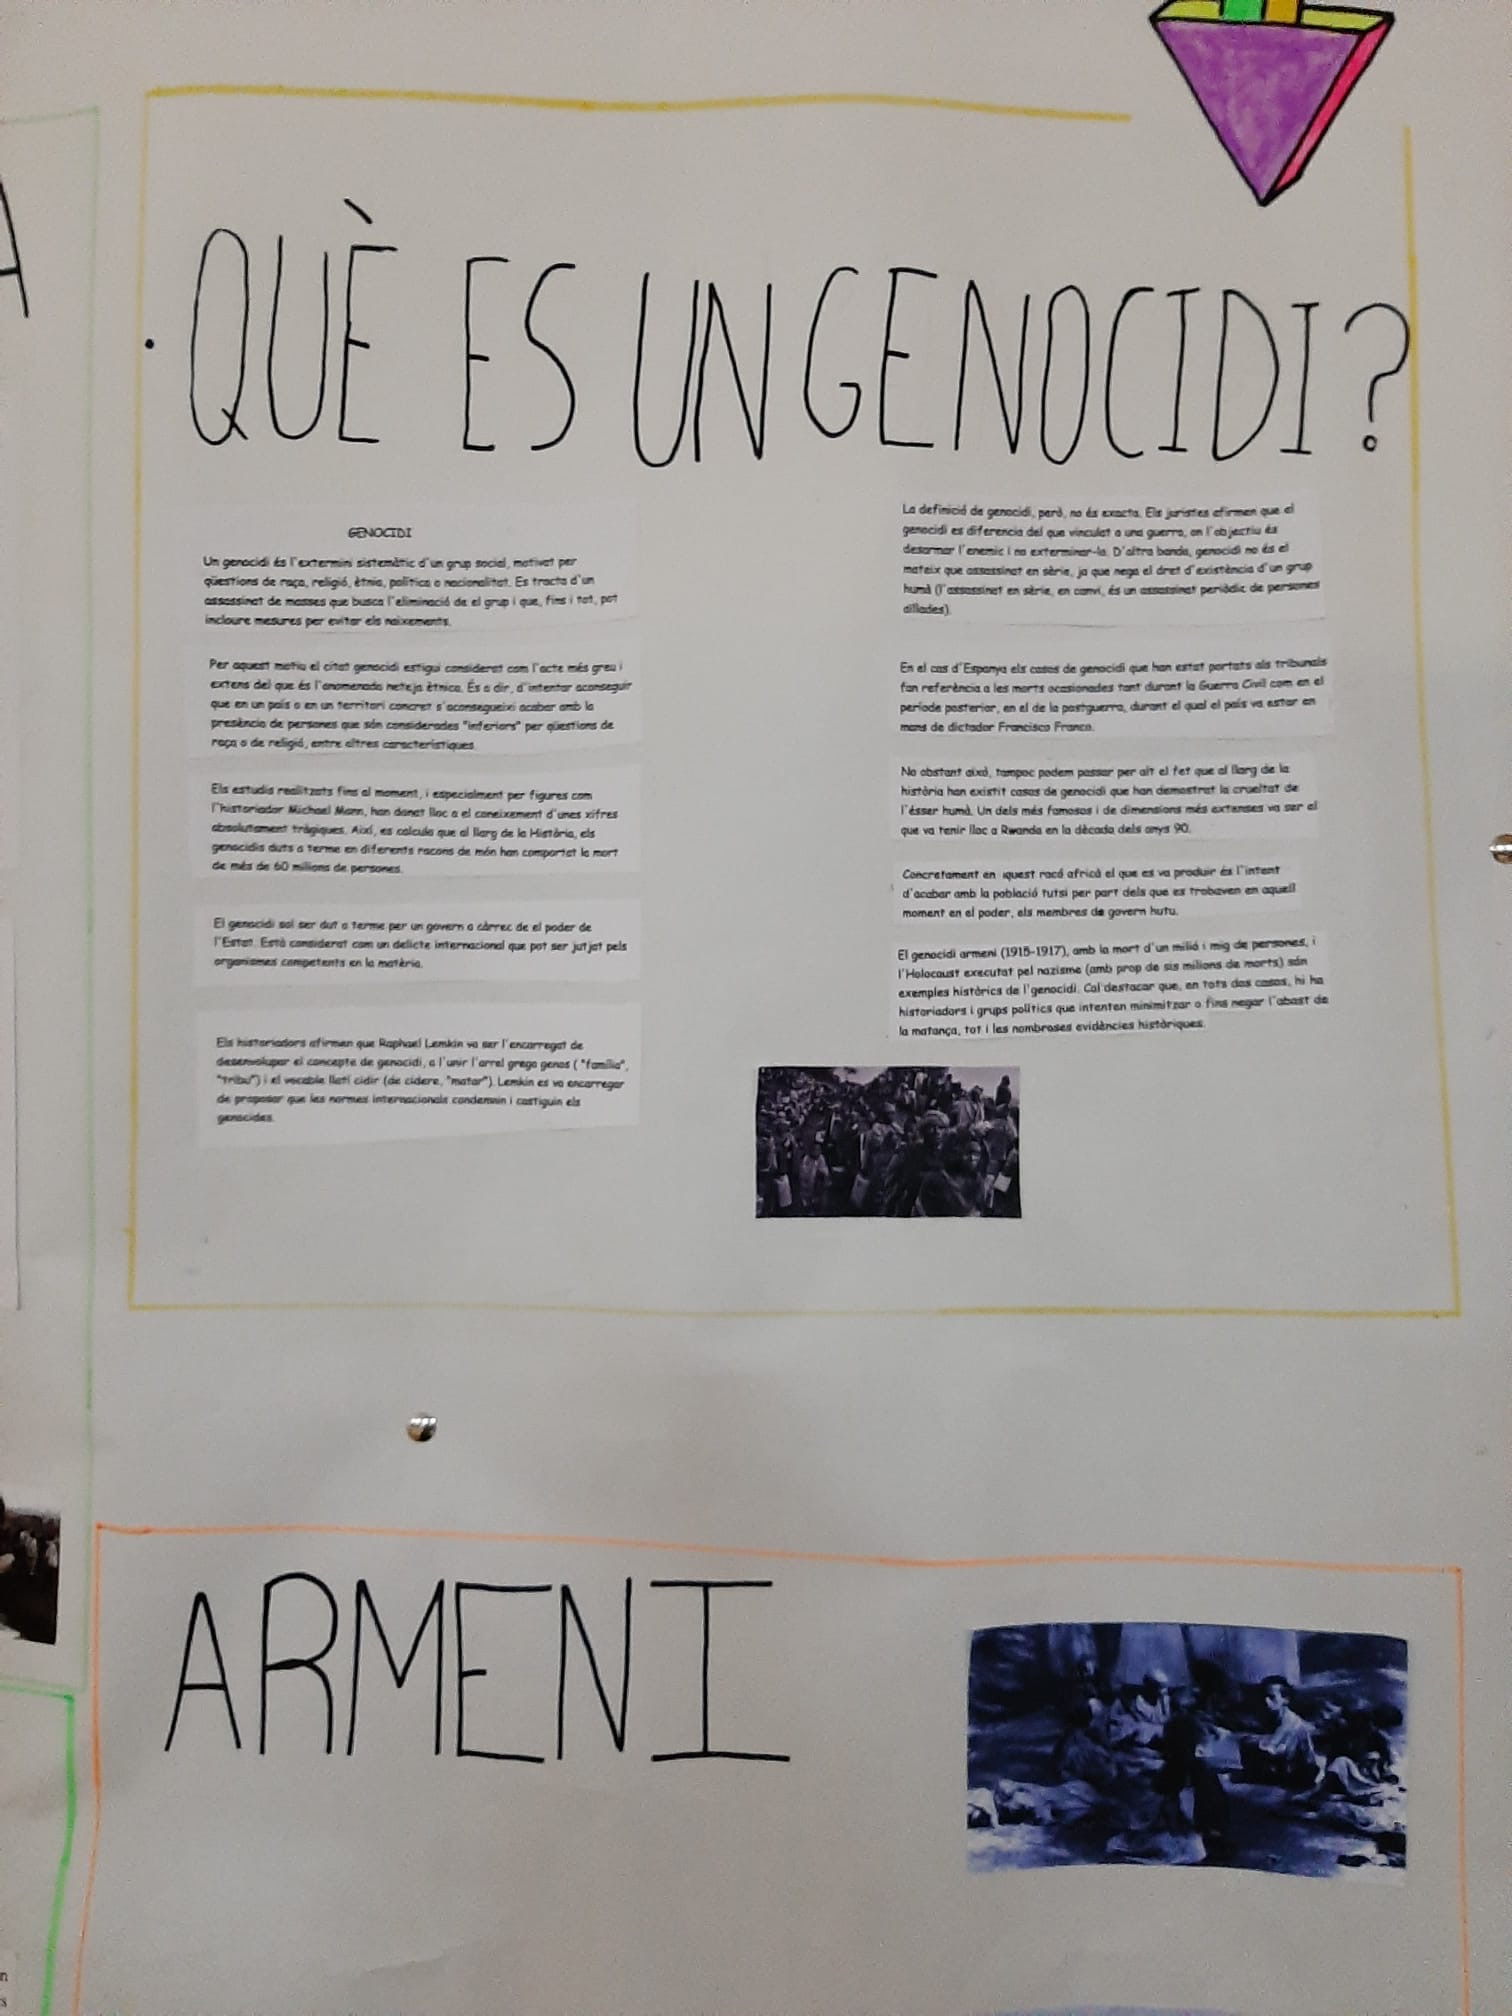 ·QUÈ ES UN GENOCIDI?
GENOCIDI
Un genocidi és l'extermini sistemàtic d'un grup social, motivat per
qüestions de raça, religió, ètnia, política o nacionalitat. Es tracta d'un
assassinat de masses que busca l'eliminació de el grup i que, fins i tot, pot
incloure mesures per evitar els naixements.
Per aquest motiu el citat genocidi estigui considerat com l'acte més greu i
extens del que és l'anomenada neteja ètnica. És a dir, d'intentar aconseguir
que en un país o en un territori concret s'aconsegueixi acabar amb la
presència de persones que són considerades "inferiors" per qüestions de
raça o de religió, entre altres característiques.
Els estudis realitzats fins al moment, i especialment per figures com
l'historiador Michael Mann, han donat lloc a el coneixement d'unes xifres
absolutament tràgiques. Així, es calcula que al llarg de la Història, els
genocidis duts a terme en diferents racons de món han comportat la mort
de més de 60 milions de persones.
El genocidi sol ser dut a terme per un govern a càrrec de el poder de
l'Estat. Està considerat com un delicte internacional que pot ser jutjat pels
organismes competents en la matèria.
Els historiadors afirmen que Raphael Lemkin va ser l'encarregat de
desenvolupar el concepte de genocidi, a l'unir l'arrel grega genos ( "família",
"tribu") i el vocable llatí cidir (de cidere, "matar"). Lemkin es va encarregar
de proposar que les normes internacionals condemnin i castiguin els
genocides.
La definició de genocidi, però, no és exacta. Els juristes afirmen que el
genocidi es diferencia del que vinculat a una guerra, on l'objectiu és
desarmar l'enemic i no exterminar-lo. D'altra banda, genocidi no és el
mateix que assassinat en sèrie, ja que nega el dret d'existència d'un grup
humà (l'assassinat en sèrie, en canvi, és un assassinat periòdic de persones
aïllades).
En el cas d'Espanya els casos de genocidi que han estat portats als tribunals
fan referència a les morts ocasionades tant durant la Guerra Civil com en el
període posterior, en el de la postguerra, durant el qual el país va estar en
mans de dictador Francisco Franco.
No obstant això, tampoc podem passar per alt el fet que al llarg de la
història han existit casos de genocidi que han demostrat la crueltat de
l'ésser humà. Un dels més famosos i de dimensions més extenses va ser el
que va tenir lloc a Rwanda en la dècada dels anys 90.
Concretament en aquest racó africà el que es va produir és l'intent
d'acabar amb la població tutsi per part dels que es trobaven en aquell
moment en el poder, els membres de govern hutu.
El genocidi armeni (1915-1917), amb la mort d'un milió i mig de persones, i
l'Holocaust executat pel nazisme (amb prop de sis milions de morts) són
exemples històrics de l'genocidi. Cal destacar que, en tots dos casos, hi ha
historiadors i grups polítics que intenten minimitzar o fins negar l'abast de
la matança, tot i les nombroses evidències històriques.
ARMENI